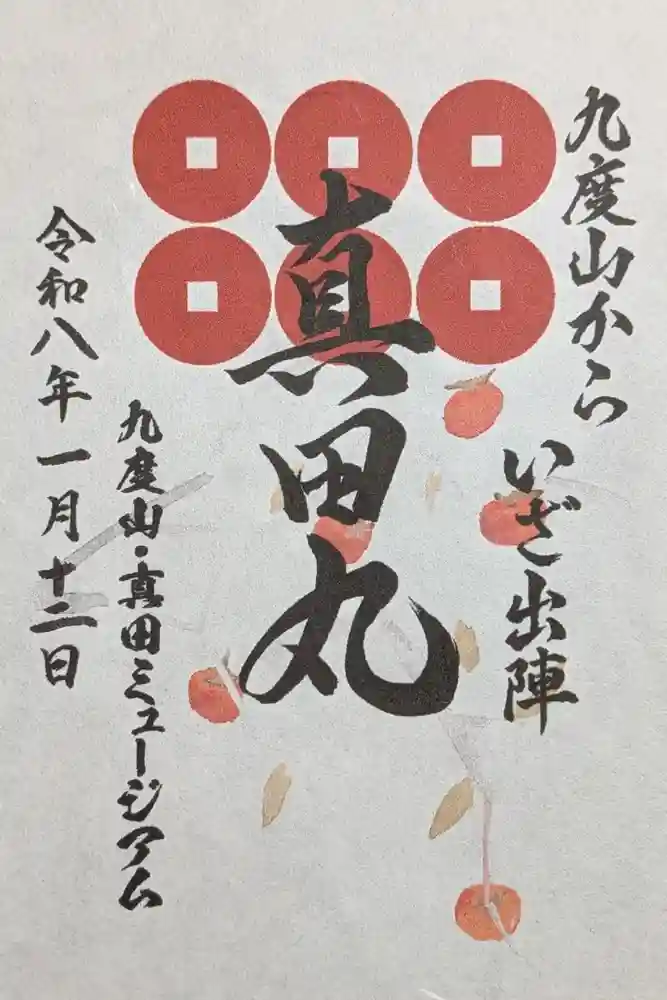 九度山から
いざ出陣
真田丸
九度山・真田ミュージアム
令和八年一月十二日